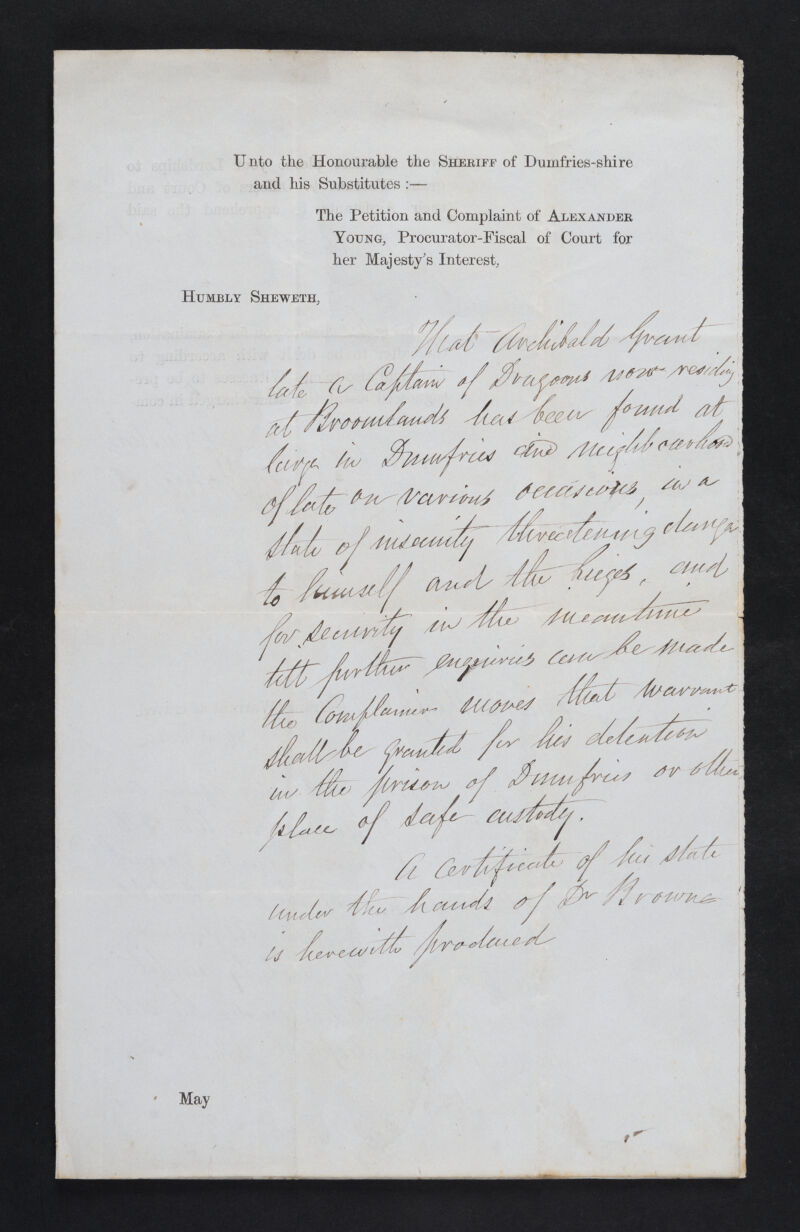 Unto the Honourable the Sheriff of Dumfries-shire
and his Substitutes :—
The Petition and Complaint of Alexander
Young, Procurator-Fiscal of Court for
her Majesty's Interest,
Humbly Sheweth,
That Archibald Grant
late a Captain of Dragoons now residing
at Broomlands has been found at
large in Dumfries and neighbourhood
of late on various occasions, in a
state of insanity threatening danger
to himself and the lieges, and
for security in the meantime
till further enquiries can be made
the Complainer moves that warrant
shall be granted for his detention
in the prison of Dumfries or other
place of safe custody.
A certificate of his state
under the hands of Dr Browne
is herewith produced
May